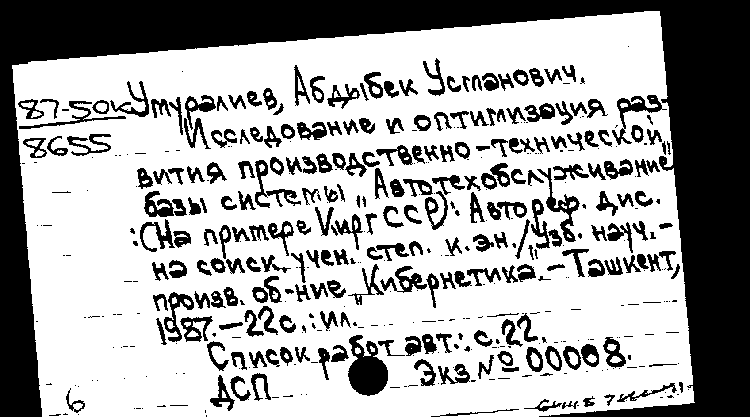 87-50к Умуралиев, Абдыбек Усманович.
8655 "Исследование и оптимизация раз-
вития производственно-технической
базы системы "Автотехобслуживание"
:(На примере КиргССР): Автореф. дис.
на соиск. учен. степ. к.э.н./Узб. науч.-
произв. об-ние "Кибернетика". – Ташкент,
1987. – 22с.: ил.
Список работ авт.: с.22.
ДСП Экз № 00008.
6